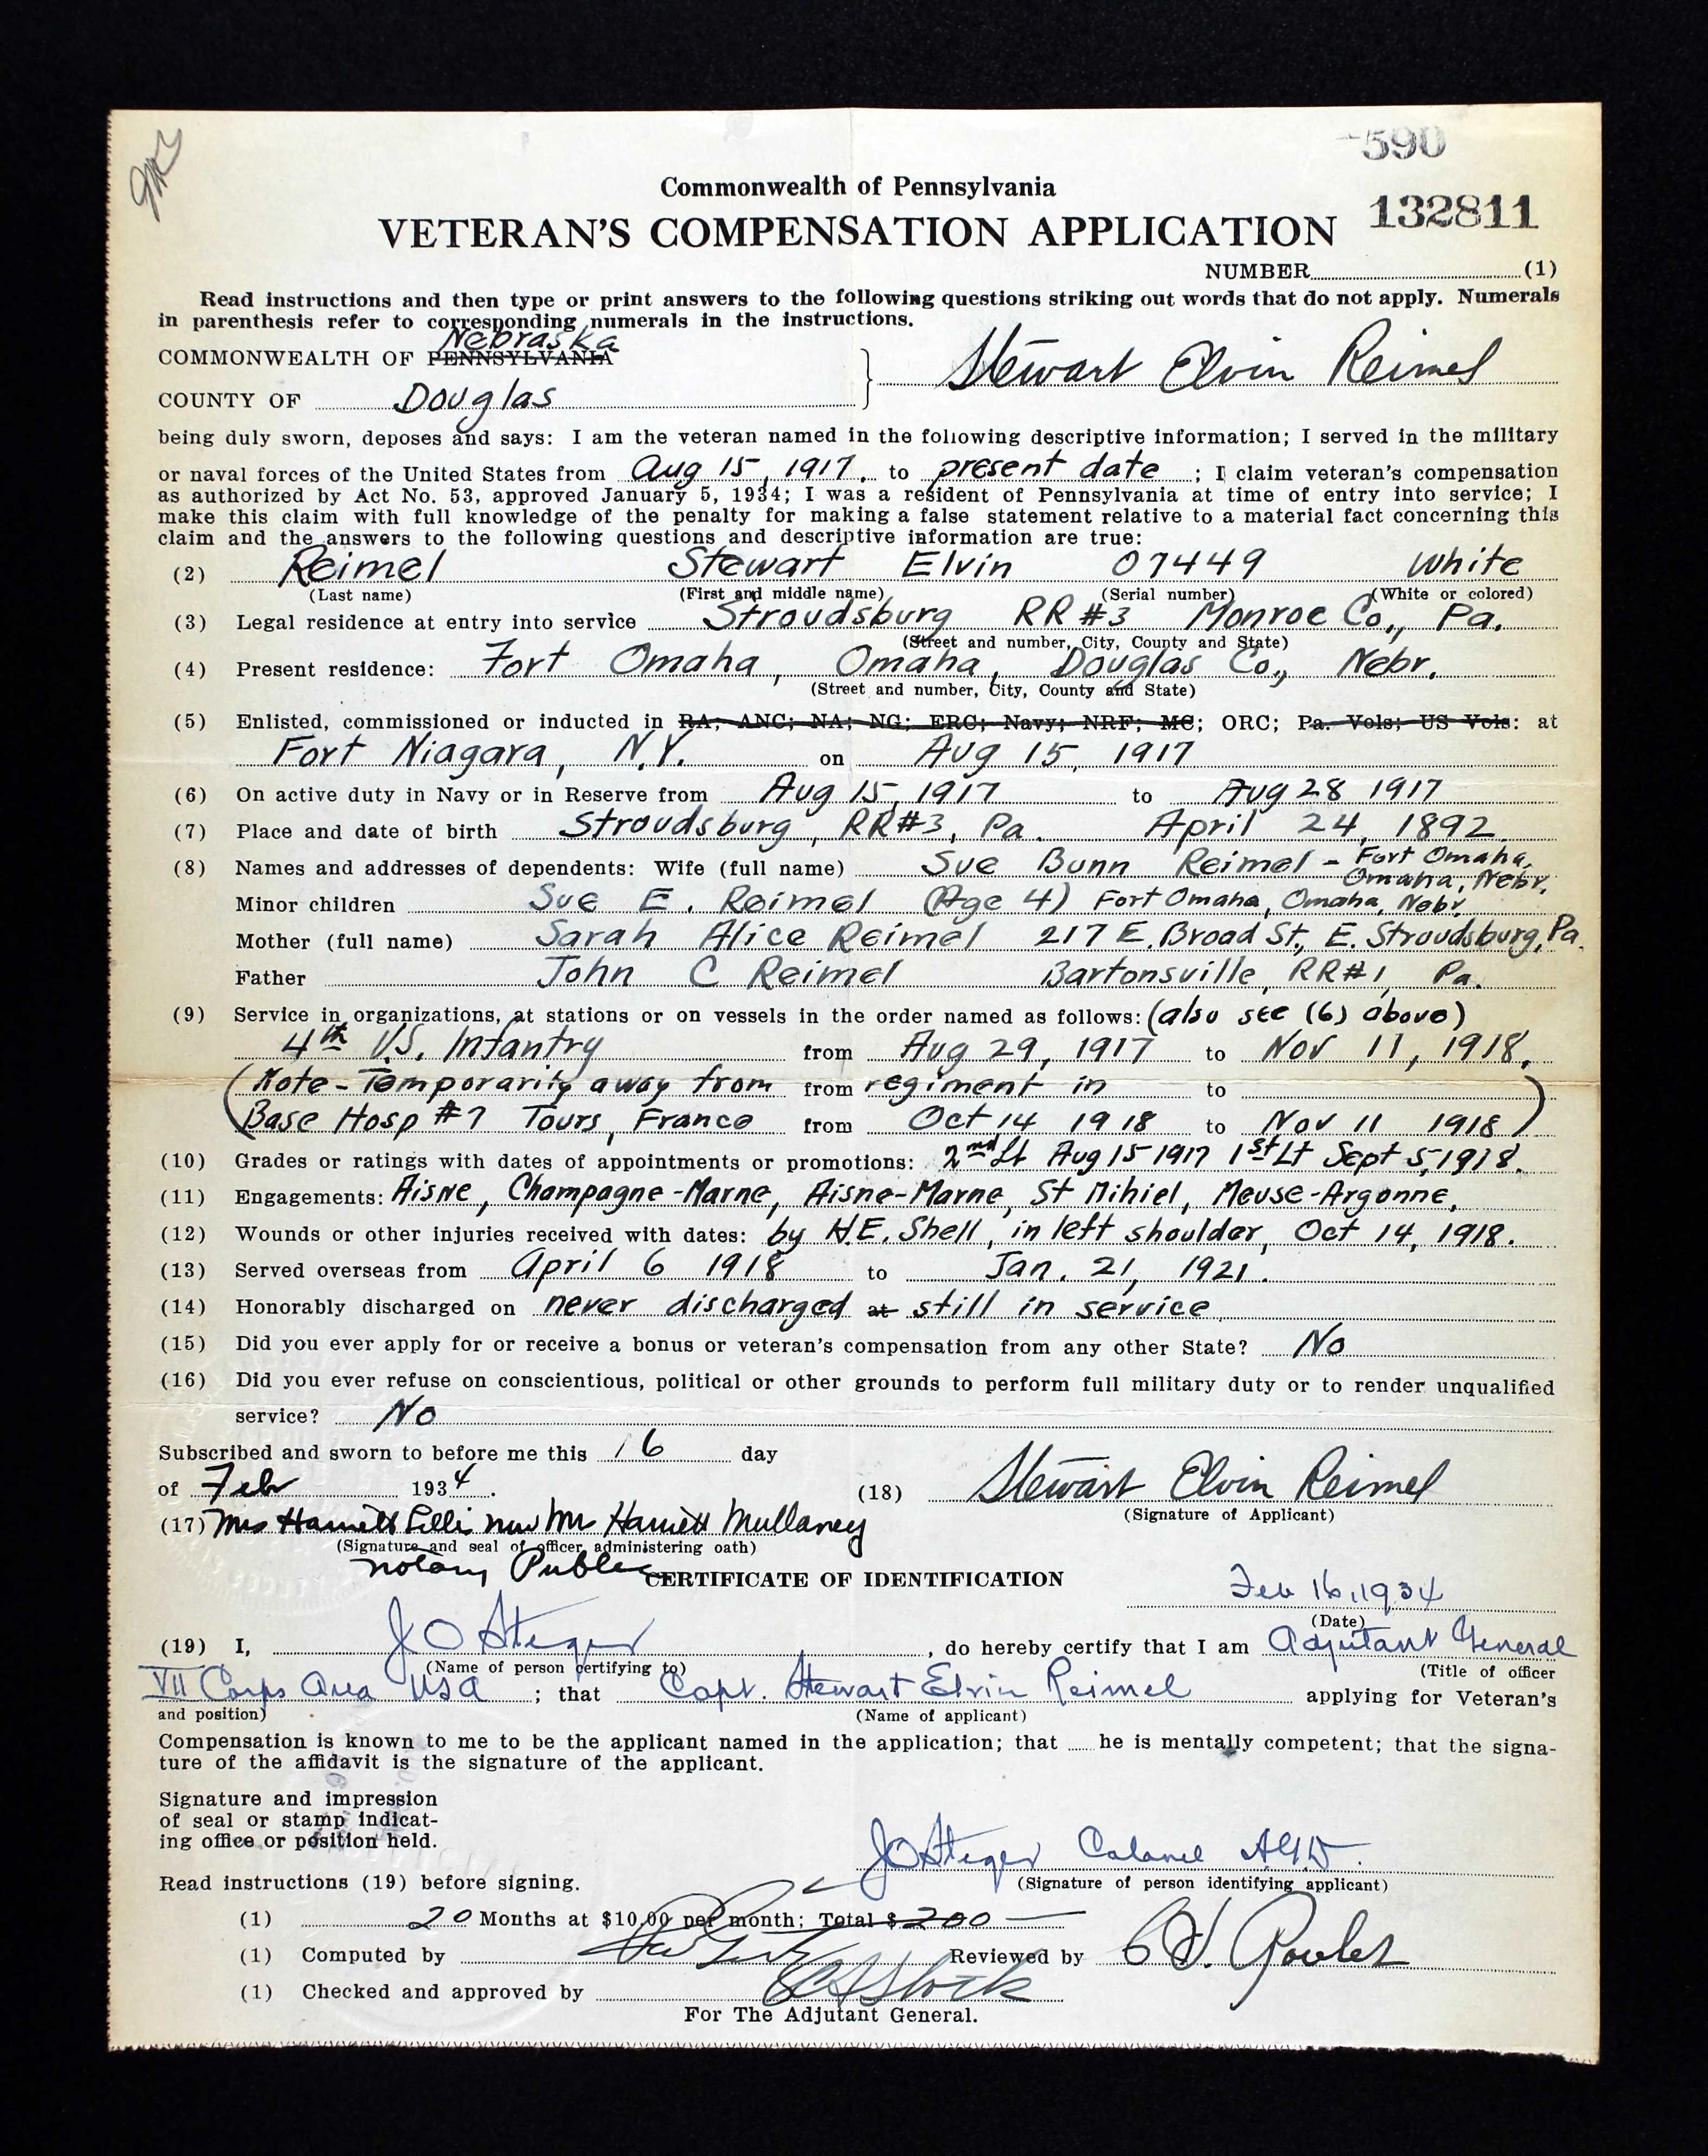 590
Commonwealth of Pennsylvania
VETERAN'S COMPENSATION APPLICATION 132811
NUMBER (1)
Read instructions and then type or print answers to the following questions striking out words that do not apply. Numerals
in parenthesis refer to corresponding numerals in the instructions.
Nebraska
COMMONWEALTH OF PENNSYLVANIA
Stewart Elvin Reimel
COUNTY OF Douglas
being duly sworn, deposes and says: I am the veteran named in the following descriptive information; I served in the military
or naval forces of the United States from Aug 15, 1917. to present date ; I claim veteran's compensation
as authorized by Act No. 53, approved January 5, 1934; I was a resident of Pennsylvania at time of entry into service; I
make this claim with full knowledge of the penalty for making a false statement relative to a material fact concerning this
claim and the answers to the following questions and descriptive information are true:
(2) Reimel Stewart Elvin 07449 White
(Last name) (First and middle name) (Serial number) (White or colored)
(3) Legal residence at entry into service Stroudsburg RR #3 Monroe Co., Pa.
(Street and number, City, County and State)
(4) Present residence: Fort Omaha, Omaha, Douglas Co., Nebr.
(Street and number, City, County and State)
(5) Enlisted, commissioned or inducted in RA; ANC; NA; NG; ERC; Navy; NRF; MC; ORC; Pa. Vols; US Vols: at
Fort Niagara, N.Y. on Aug 15, 1917
(6) On active duty in Navy or in Reserve from Aug 15, 1917 to Aug 28 1917
(7) Place and date of birth Stroudsburg, RR#3, Pa. April 24, 1892
(8) Names and addresses of dependents: Wife (full name) Sue Bunn Reimel - Fort Omaha,
Omaha, Nebr.
Minor children Sue E. Reimel (Age 4) Fort Omaha, Omaha, Nebr.
Mother (full name) Sarah Alice Reimel 217 E. Broad St., E. Stroudsburg, Pa.
Father John C Reimel Bartonsville, RR#1, Pa.
(9) Service in organizations, at stations or on vessels in the order named as follows: (also see (6) above)
4th U.S. Infantry from Aug 29, 1917 to Nov 11, 1918.
(Note - Temporarily away from from regiment in to
Base Hosp #7 Tours, France from Oct 14 1918 to Nov 11 1918)
(10) Grades or ratings with dates of appointments or promotions: 2nd Lt Aug 15 1917 1st Lt Sept 5, 1918.
(11) Engagements: Aisne, Champagne-Marne, Aisne-Marne, St Mihiel, Meuse-Argonne.
(12) Wounds or other injuries received with dates: by H.E. Shell, in left shoulder, Oct 14, 1918.
(13) Served overseas from April 6 1918 to Jan. 21, 1921.
(14) Honorably discharged on never discharged at still in service
(15) Did you ever apply for or receive a bonus or veteran's compensation from any other State? No
(16) Did you ever refuse on conscientious, political or other grounds to perform full military duty or to render unqualified
service? No
Subscribed and sworn to before me this 16 day
of Feb 1934.
(18) Stewart Elvin Reimel
(Signature of Applicant)
(17) Mrs Harriett Ellis now Mrs Harriett Mullaney
(Signature and seal of officer administering oath)
Notary Public
CERTIFICATE OF IDENTIFICATION
Feb 16, 1934
(Date)
(19) I, J O Steger, do hereby certify that I am Adjutant General
(Name of person certifying to) (Title of officer
VII Corps Area USA ; that Capt. Stewart Elvin Reimel applying for Veteran's
and position) (Name of applicant)
Compensation is known to me to be the applicant named in the application; that he is mentally competent; that the signa-
ture of the affidavit is the signature of the applicant.
Signature and impression
of seal or stamp indicat-
ing office or position held.
J O Steger Colonel AGD.
Read instructions (19) before signing. (Signature of person identifying applicant)
(1) 20 Months at $10.00 per month; Total $ 200
(1) Computed by Reviewed by
(1) Checked and approved by
For The Adjutant General.